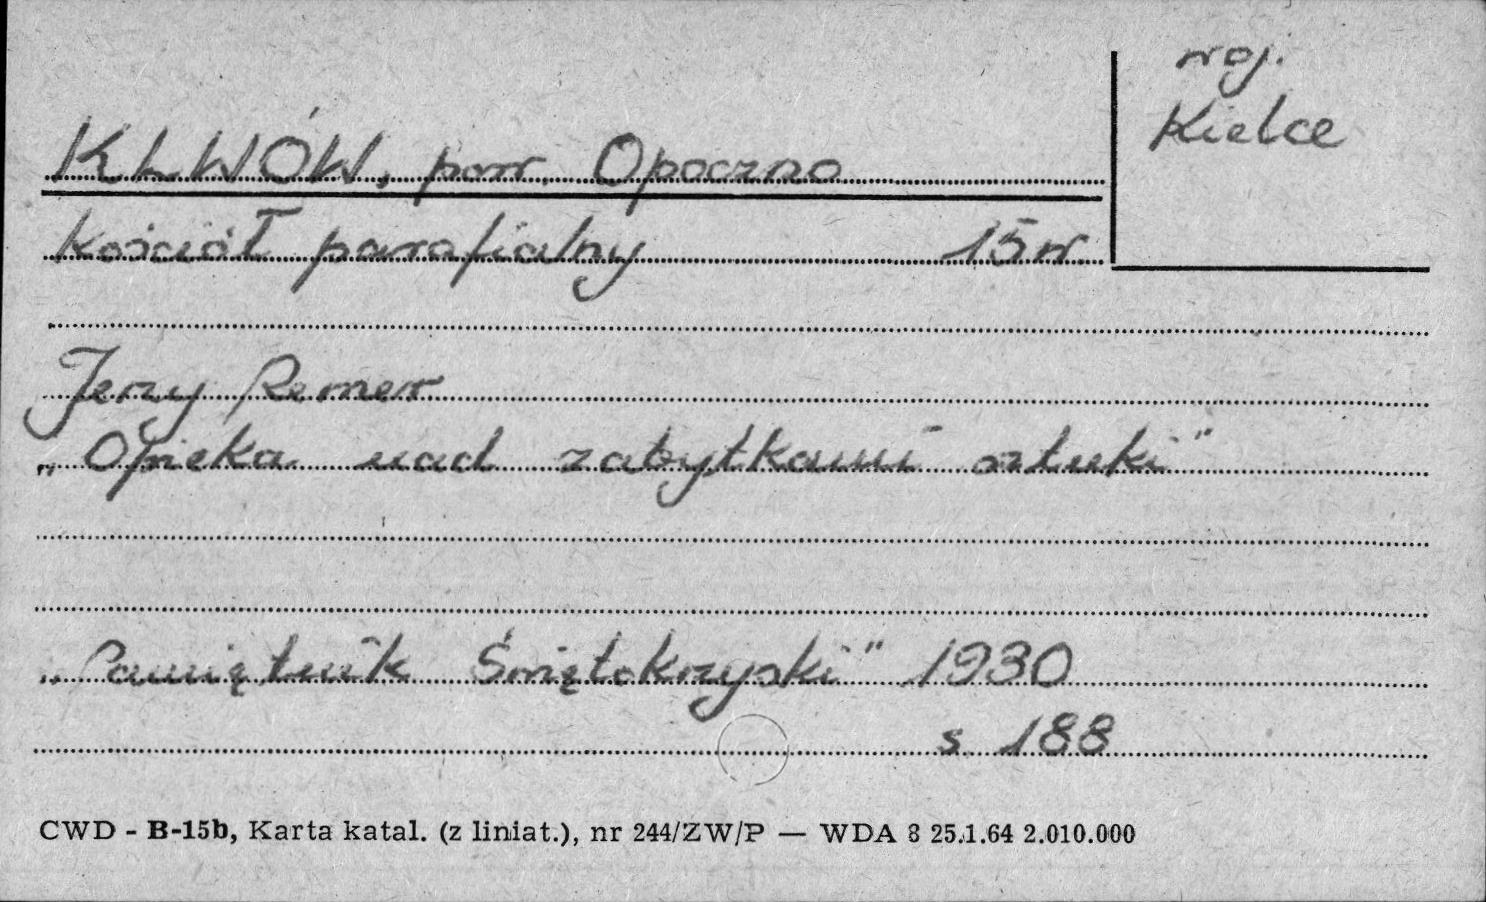 woj.
Kielce
KLWÓW, pow. Opoczno
Kościół parafialny 15 w.
Jerzy Remer
„Opieka nad zabytkami sztuki"
„Pamiętnik Świętokrzyski" 1930
s. 188
CWD - B-15b, Karta katal. (z liniat.), nr 244/ZW/P — WDA 8 25.1.64 2.010.000